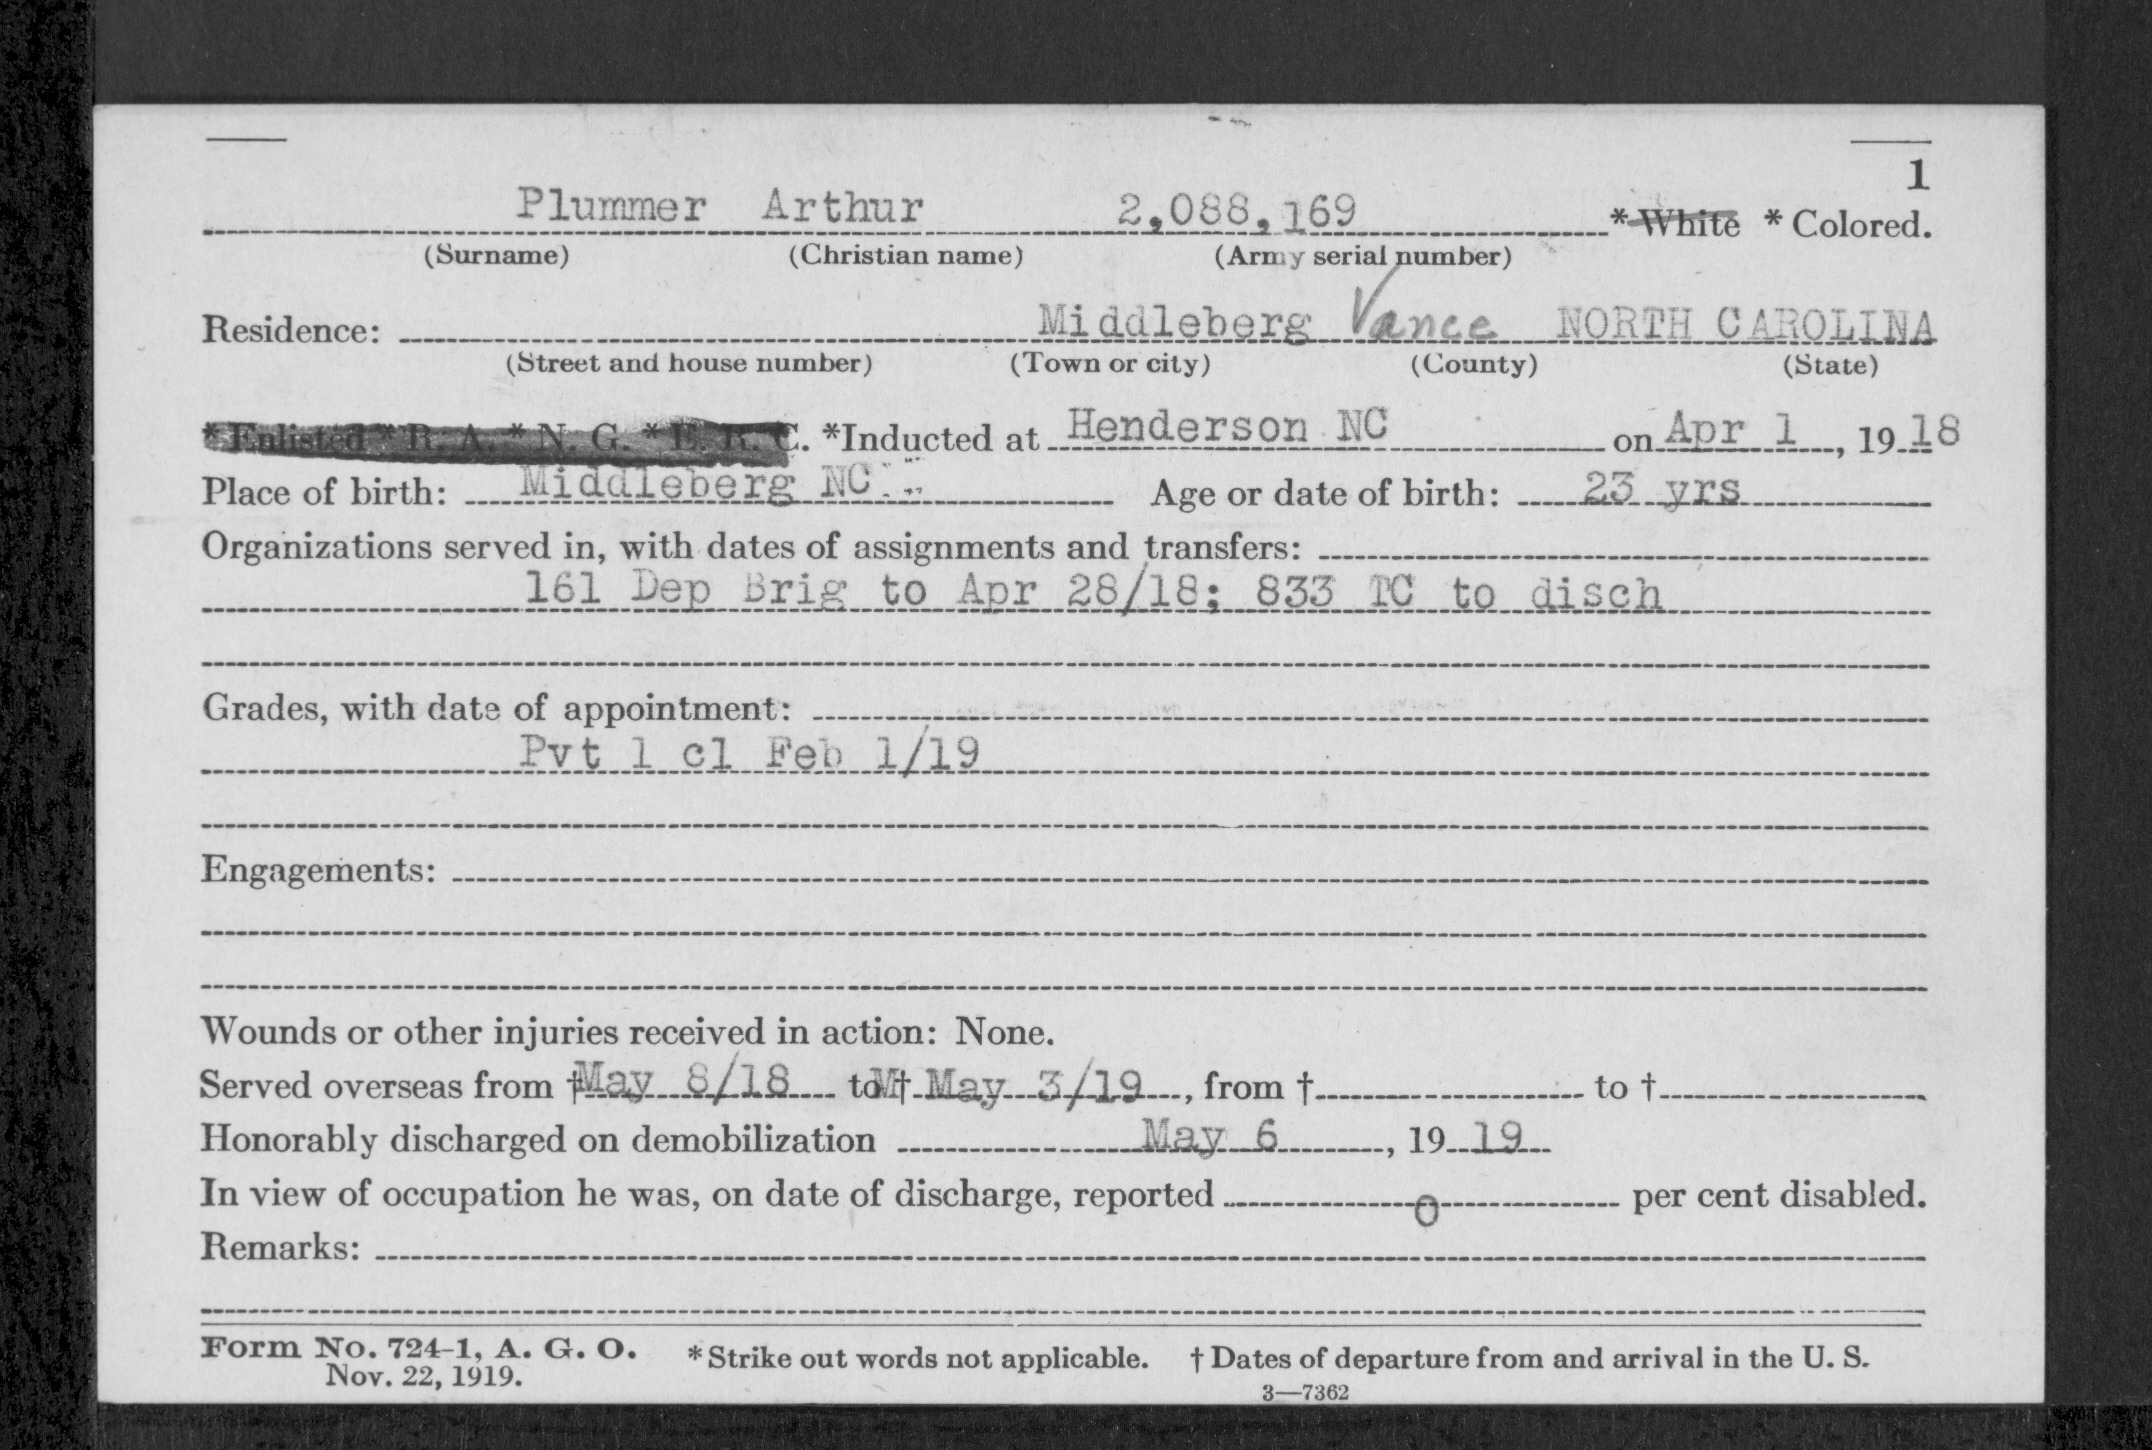 1
Plummer Arthur 2,088,169 * White * Colored.
(Surname) (Christian name) (Army serial number)
Residence: Middleberg Vance NORTH CAROLINA
(Street and house number) (Town or city) (County) (State)
* Enlisted * R. A. * N. G. * E. R. C. *Inducted at Henderson NC on Apr 1, 19 18
Place of birth: Middleberg NC Age or date of birth: 23 yrs
Organizations served in, with dates of assignments and transfers:
161 Dep Brig to Apr 28/18; 833 TC to disch
Grades, with date of appointment:
Pvt 1 cl Feb 1/19
Engagements:
Wounds or other injuries received in action: None.
Served overseas from † May 8/18 to M † May 3/19, from † to †
Honorably discharged on demobilization May 6, 19 19
In view of occupation he was, on date of discharge, reported 0 per cent disabled.
Remarks:
Form No. 724-1, A. G. O. * Strike out words not applicable. † Dates of departure from and arrival in the U. S.
Nov. 22, 1919.
3—7362